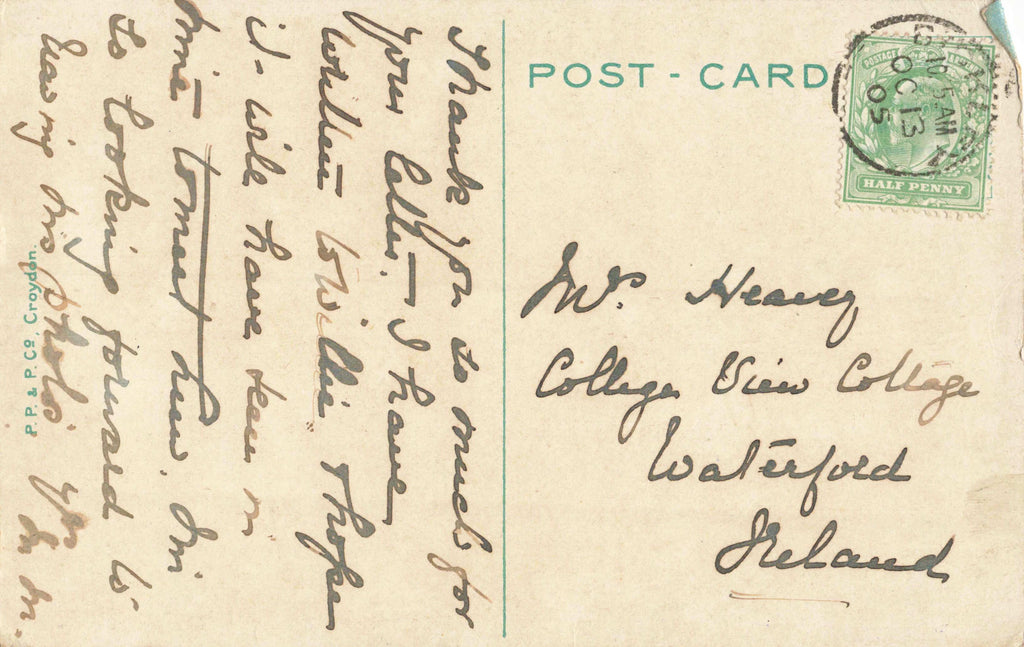 POST - CARD
10 5. AM
OC 13
05
POSTAGE
HALF PENNY
Mrs Heavey
College View Cottage
Waterford
Ireland
Thank you so much for
your letter. I have
written to Willie & hope
it will have been in
time to meet him. I'm
so looking forward to
seeing his photo.
P.P. & P. Co, Croydon.